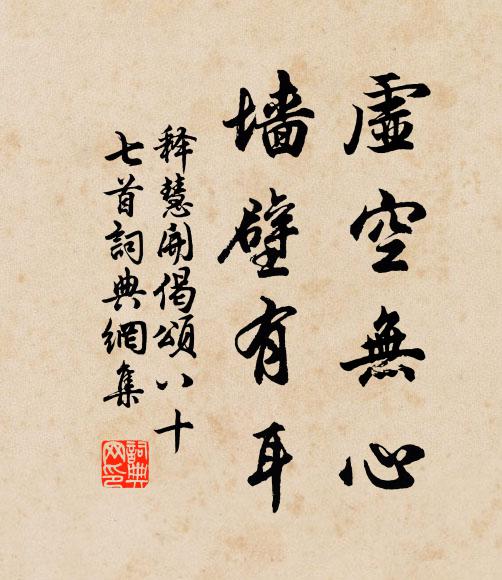 虛空無心
墙壁有耳
释慧開偈頌八十
七首詞典網集
詞典
网印